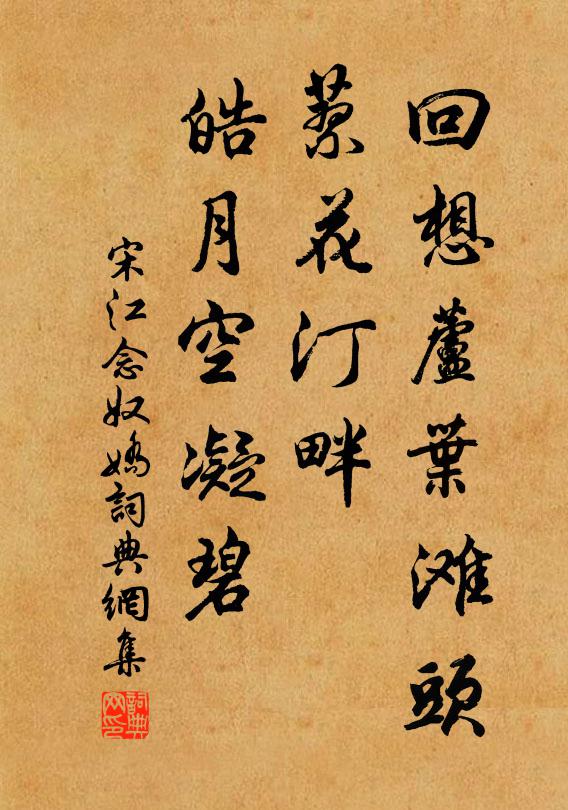 回想蘆葉滩頭
蓼花汀畔
皓月空凝碧
宋江念奴嬌詞典網集
詞典
网印